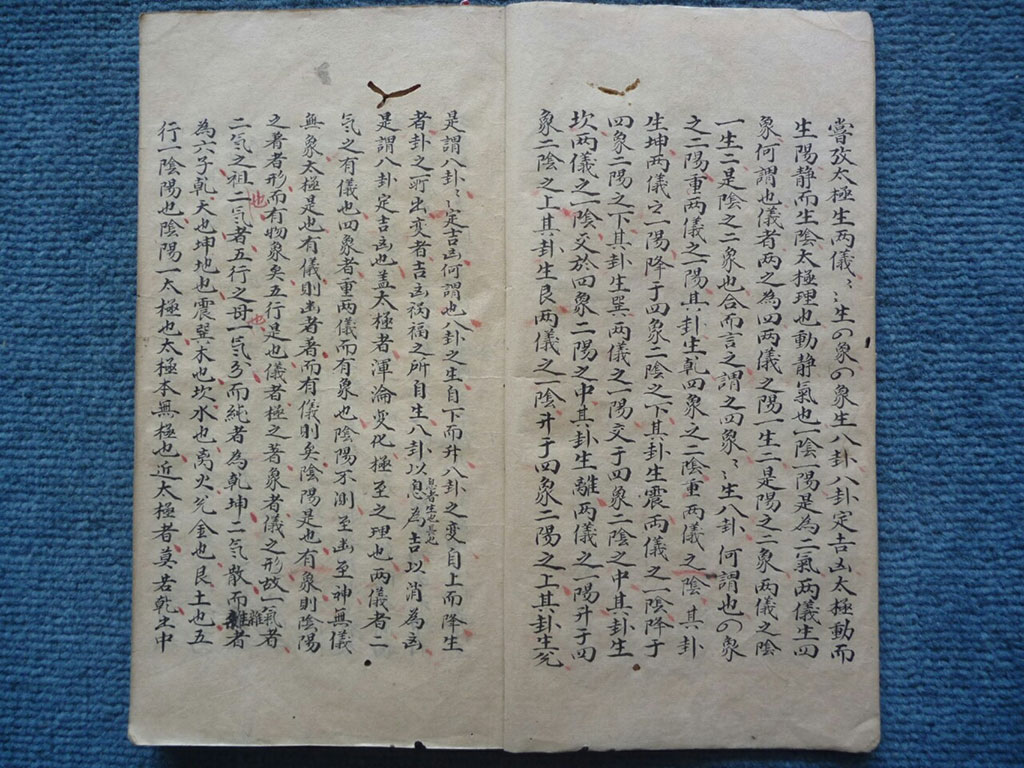 嘗攷太極生两儀〻生四象四象生八卦八卦定吉凶太極動而
生陽静而生陰太極理也動静氣也一陰一陽是為二氣两儀生四
象何謂也儀者两之為四两儀之陽一生二是陽之二象两儀之陰
一生二是陰之二象也合而言之謂之四象〻生八卦何謂也四象
之二陽重两儀之一陽其卦生乾四象之二陰重两儀之一陰其卦
生坤两儀之一陽降于四象二陰之下其卦生震两儀之一陰降于
四象二陽之下其卦生巽两儀之一陽交于四象二陰之中其卦生
坎两儀之一陰交於四象二陽之中其卦生離两儀之一陽升于四
象二陰之上其卦生艮两儀之一陰升于四象二陽之上其卦生兌
是謂八卦〻定吉凶何謂也八卦之生自下而升八卦之变自上而降生
者卦之所出变者吉凶祸福之所自生八卦以息息者生也為吉以消為凶
是謂八卦定吉凶也盖太極者渾淪变化極至之理也两儀者二
氣之有儀也四象者重两儀而有象也陰陽不測至幽至神無儀
無象太極是也有儀則幽者著而有儀則矣陰陽是也有象則陰陽
之著者形而有物象矣五行是也儀者極之著象者儀之形故一氣者
二氣之祖也二氣者五行之母也一氣分而純者為乾坤二氣散而雜者
為六子乾天也坤地也震巽木也坎水也离火也兌金也艮土也五
行一陰陽也陰陽一太極也太極本無極也近太極者莫若乾坤中